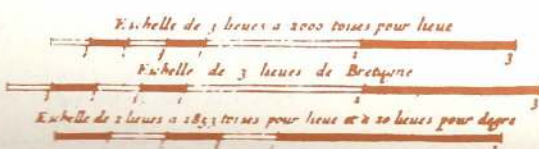 Eschelle de 3 lieues a 2000 toises pour lieue
1 2 3
Eschelle de 3 lieues de Bretagne
1 2 3
Eschelle de 2 lieues a 2853 toises pour lieue et a 20 lieues pour degre